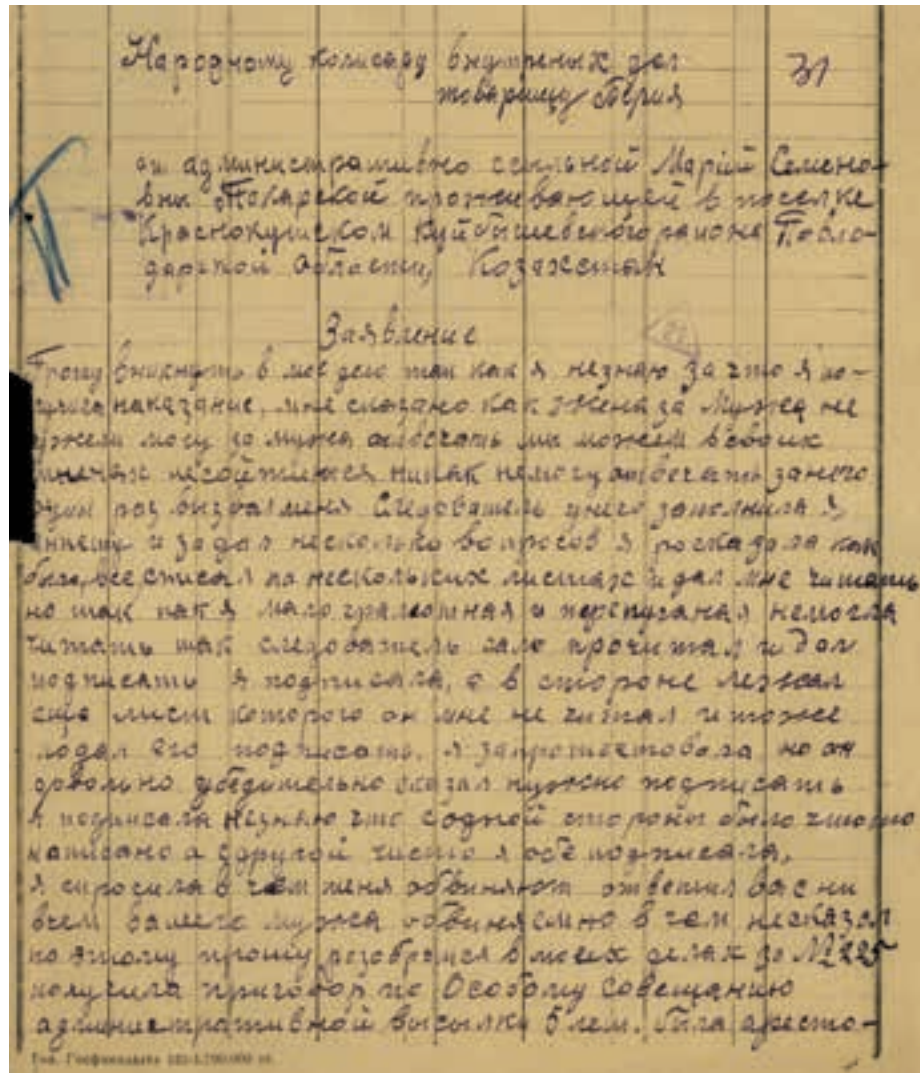 Народному комисару внутреных дел
товарищу Берия
31
от административно ссыльной Марий Семено-
вны Токарской проживающей в поселке
Краснокутском Куйбышевского района Павло-
дарской области, Козахстан
Заявление
Прошу вникнуть в мое дело так как я незнаю за что я по-
наказание, мне сказано как жена за мужа не
ужели могу за мужа отвечать мы можем всвоих
несойтиться никак немогу отвечать занего
один раз визвал меня Следователь унего заполнила я
анкету и задал несколько вопросов я росказала как
было, все списал на нескольких листах и дал мне читать
но так как я мало грамотная и перепуганая немогла
читать так следователь сам прочитал и дал
подписать я подписала, а в стороне лежал
еще лист которого он мне не читал и тоже
подал его подписать, я запротестовала но он
довольно убедительно сказал нужно подписать
я подписала незнаю что содной стороны было что то
написано а здругой чисто я обе подписала,
я спросила в чем меня обвиняют ответил вас ни
вчем вашего мужа обвиняем но в чем несказал
по этому прошу розобраться в моих делах за № 225
получила приговор по Особому Совещанию
административной высылки 5 лет. Была аресто-